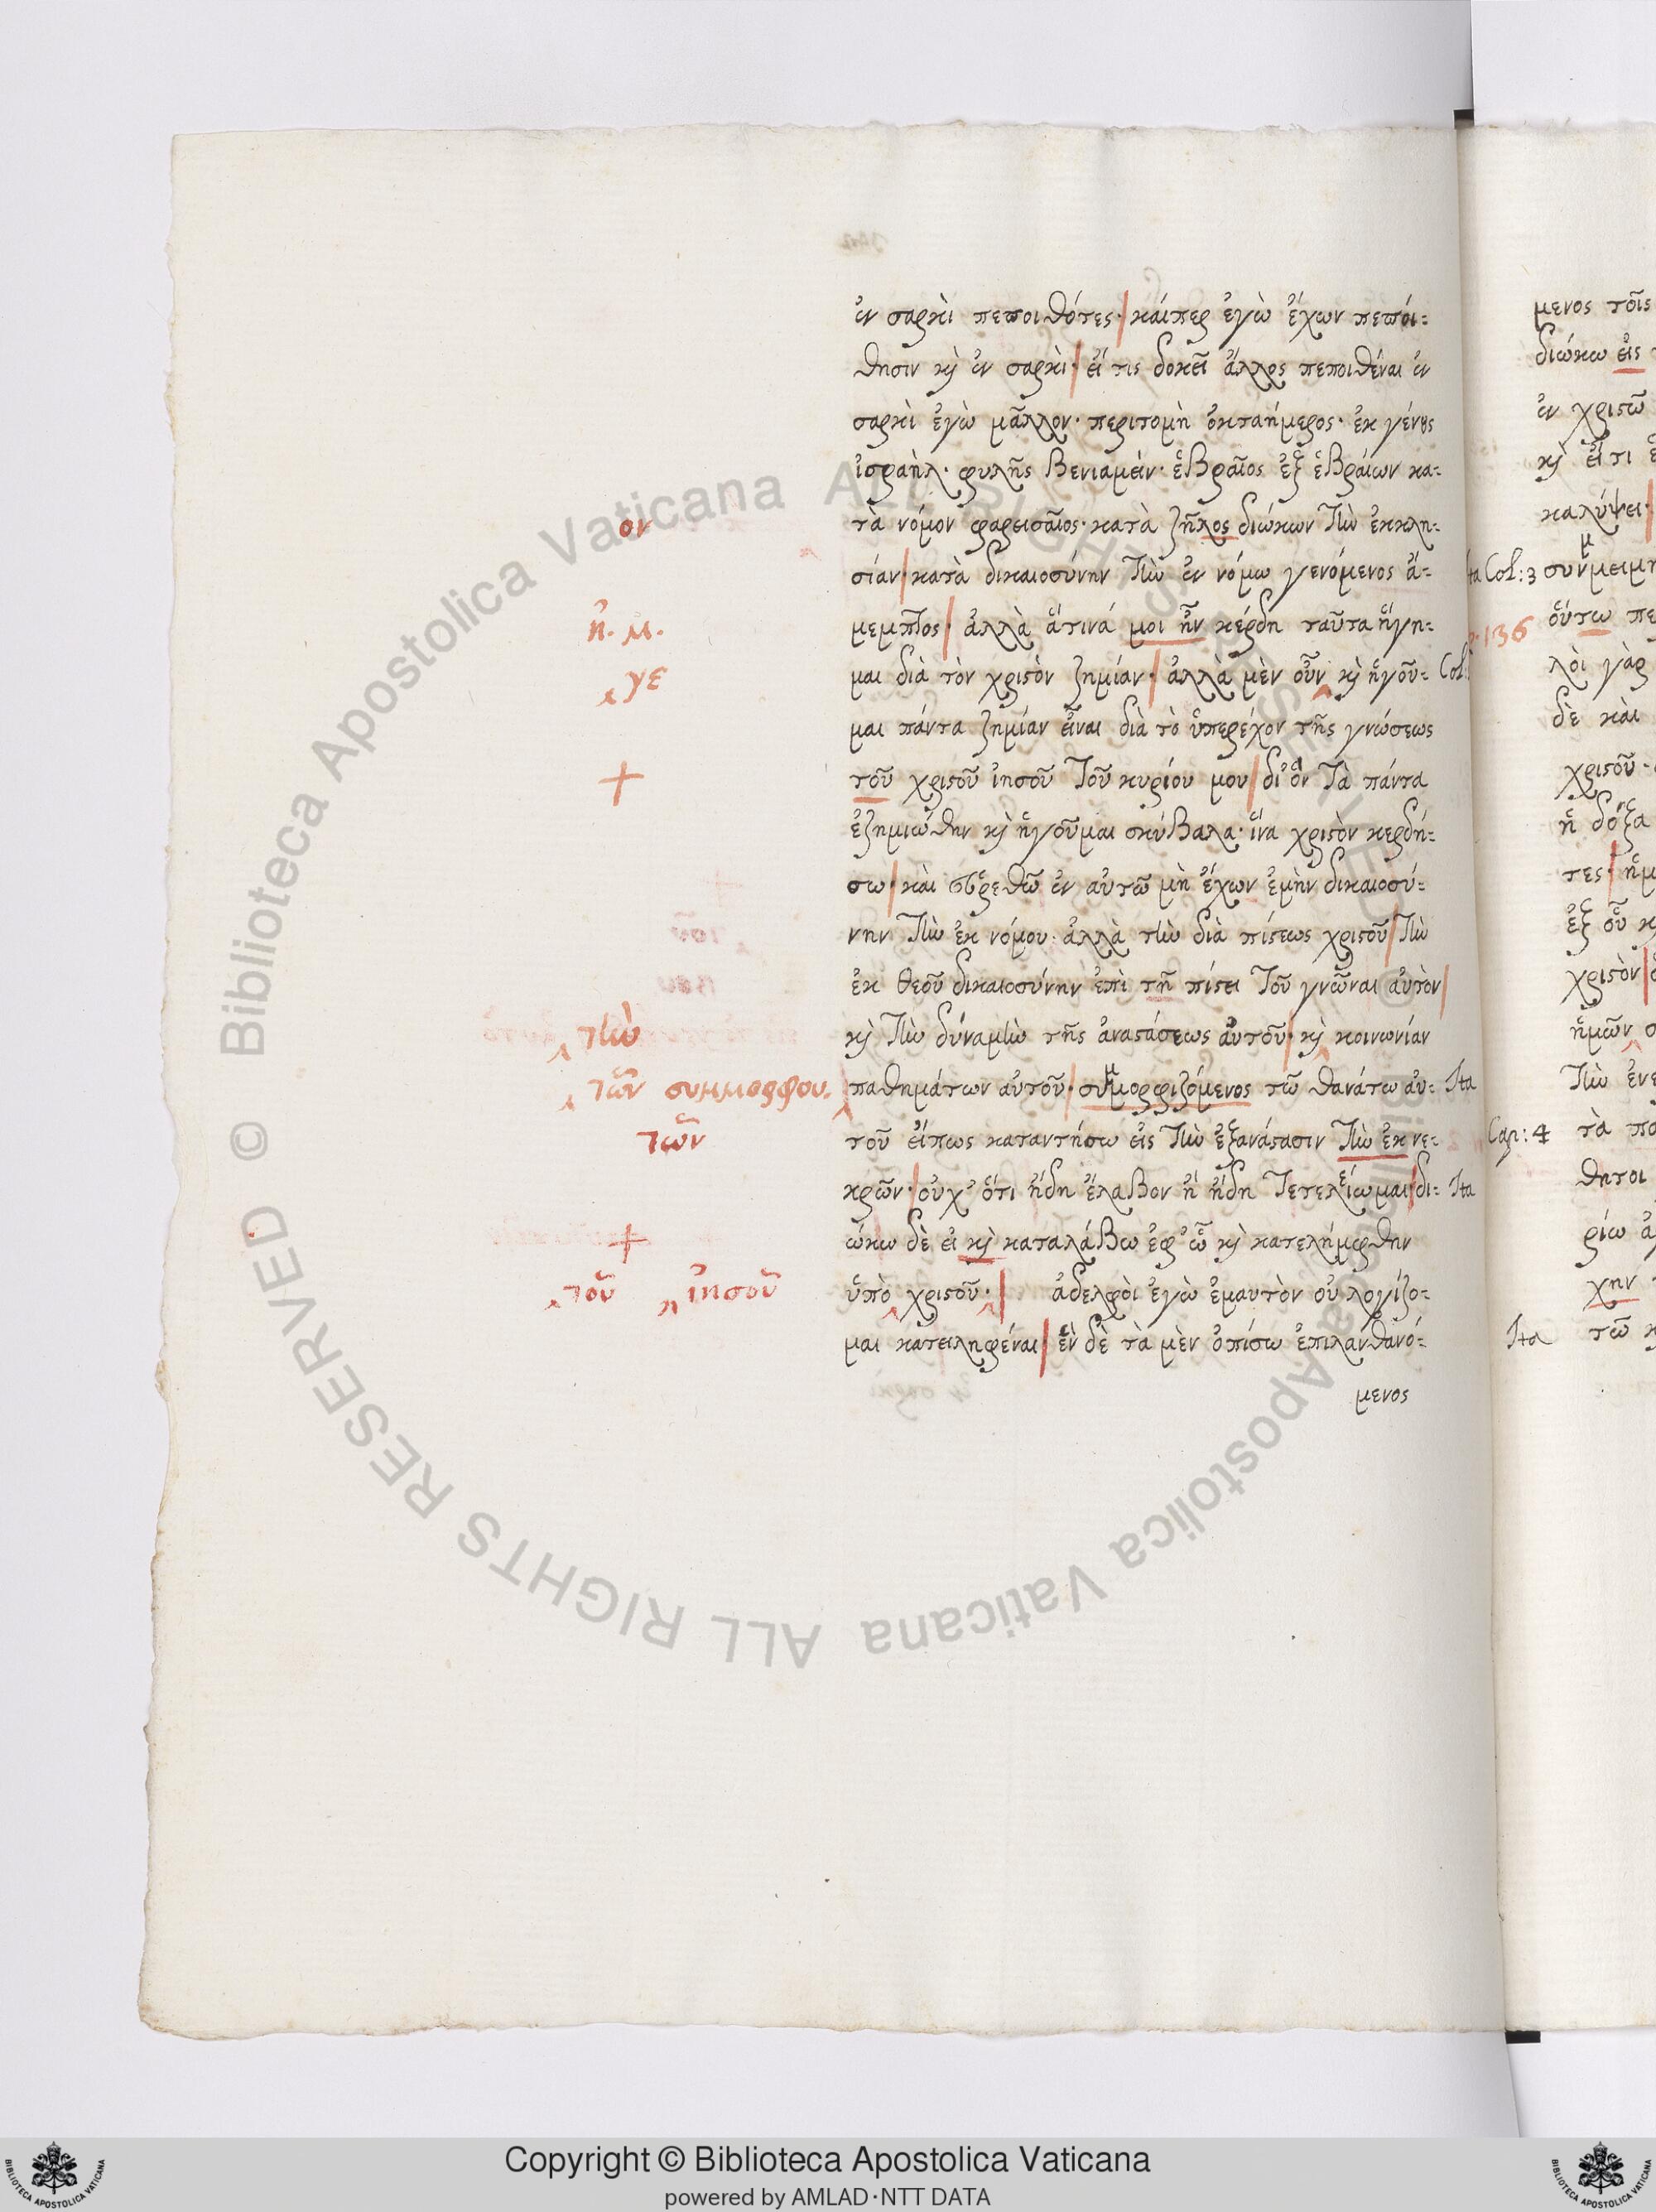 ἐν σαρκὶ πεποιθότες· καίπερ ἐγὼ ἔχων πεποί-
θησιν κỳ ἐν σαρκὶ· εἴ τις δοκεῖ ἄλλος πεποιθέναι ἐν
σαρκὶ ἐγὼ μᾶλλον· περιτομὴ ὀκταήμερος· ἐκ γένους
ἰσραὴλ· φυλῆς Βενιαμείν· ἑβραῖος ἐξ ἑβραίων κα-
ον
τὰ νόμον φαρεισαῖος· κατὰ ζῆλος διώκων τὴν ἐκκλη-
σίαν· κατὰ δικαιοσύνην τὴν ἐν νόμω γενόμενος ἄ-
ἦ. μ.
μεμπτος· ἀλλὰ ἅτινά μοι ἦν κέρδη ταῦτα ἥγη-
μαι διὰ τὸν χριστὸν ζημίαν· ἀλλὰ μὲν οὖν κỳ ἡγοῦ-
‸ γε
μαι πάντα ζημίαν εἶναι διὰ τὸ ὑπερέχον τῆς γνώσεως
+
τοῦ χριστοῦ ἰησοῦ τοῦ κυρίου μου δι᾽ ὃν τὰ πάντα
ἐζημιώθην κỳ ἡγοῦμαι σκύβαλα· ἵνα χριστὸν κερδή-
σω· καὶ εὑρεθῶ ἐν αὐτῶ μὴ ἔχων ἐμὴν δικαιοσύ-
νην τὴν ἐκ νόμου· ἀλλὰ τὴν διὰ πίστεως χριστοῦ τὴν
ἐκ θεοῦ δικαιοσύνην ἐπὶ τῆ πίστει τοῦ γνῶναι αὐτὸν
‸ τὴν
κỳ τὴν δύναμιν τῆς ἀναστάσεως αὐτοῦ· κỳ κοινωνίαν
‸ τῶν συμμορφου-
παθημάτων αὐτοῦ· συμμορφιζόμενος τῶ θανάτω αὐ- Ita
τῶν
τοῦ εἴπως καταντήσω εἰς τὴν ἐξανάστασιν τὴν ἐκ νε-
κρῶν· οὐχ᾽ ὅτι ἤδη ἔλαβον ἢ ἤδη τετελείωμαι δι- Ita
+
ώκω δὲ εἰ κỳ καταλάβω ἐφ᾽ ὧ κỳ κατελήμφθην
‸ τοῦ ‸ ἰησοῦ
ὑπὸ χριστοῦ· ἀδελφοὶ ἐγὼ ἐμαυτὸν οὐ λογίζο-
μαι κατειληφέναι ἓν δὲ τὰ μὲν ὀπίσω ἐπιλανθανό-
μενος
μενος τοῖς
διώκω εἰς
ἐν χριστῶ
κỳ εἴ τι
καλύψει·
Col: 3
136
οὕτω πε
Col:
λοὶ γὰρ
δὲ καὶ
χριστοῦ·
ἡ δόξα
τες· ἡμ
ἐξ οὗ κỳ
χριστὸν
ἡμῶν σ
τὴν ἐνε
Cap: 4 τὰ πα
θητοι
ρίω
χην
Ita τῶ
Copyright © Biblioteca Apostolica Vaticana
powered by AMLAD·NTT DATA
© Biblioteca Apostolica Vaticana ALL RIGHTS RESERVED
© Biblioteca Apostolica Vaticana ALL RIGHTS RESERVED
BIBLIOTECA APOSTOLICA VATICANA
BIBLIOTECA APOSTOLICA VATICANA